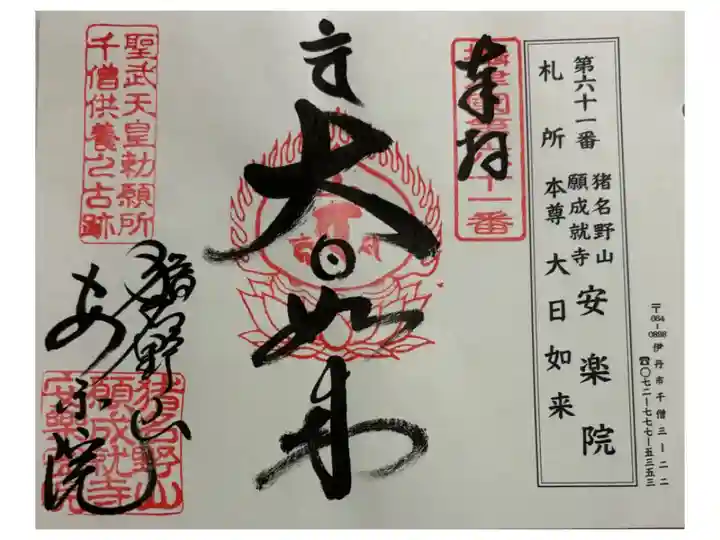 第六十一番
札所
猪名野山
願成就寺
安楽院
本尊
大日如来
〒664-0898 伊丹市千僧三ー二二
☎〇七二ー七七七ー五三五三
奉拝
大日如来
聖武天皇勅願所
千僧供養之古跡
猪名野山
安楽院
猪名野山
願成就寺
安樂院